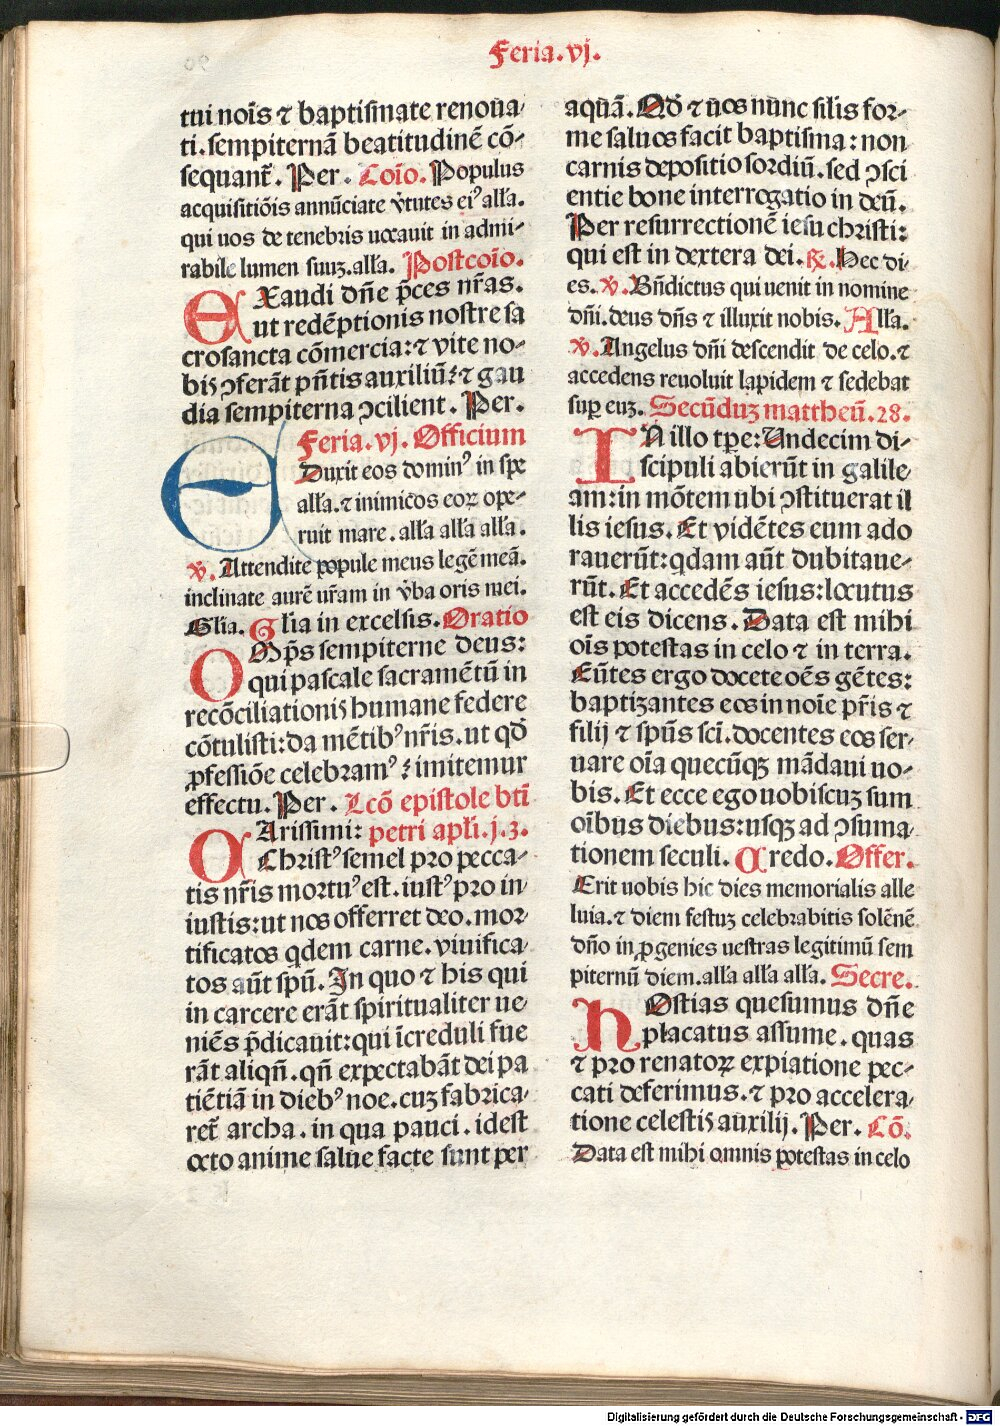 Feria.vj.
tui nois̄ ⁊ baptismate renoua-
ti.sempiternā beatitudinē cō-
sequanť. Per. Coīo. Populus
acquisitiōis annūciate v̓tutes eiꝰ alľa.
qui uos de tenebris uocauit in admi-
rabile lumen suuꝫ.alľa. Postcoīo.
EXaudi dn̄e p̄ces nr̄as.
ut redēptionis nostre sa
crosancta cōmercia:⁊ vite no-
bis ꝯferāt pn̄tis auxiliū:⁊ gau
dia sempiterna ꝯcilient. Per.
Feria.vj. Officium
EDuxit eos dominꝰ in spe
alľa.⁊ inimicos eoꝝ ope-
ruit mare. alľa alľa alľa.
℣. Attendite popule meus legē meā.
inclinate aurē ur̄am in v̓ba oris mei.
Glia. Glia in excelsis. Oratio
OMp̄s sempiterne deus:
qui pascale sacramētū in
recōciliationis humane federe
cōtulisti:da mētibꝰ nr̄is.ut qď
ꝓfessiōe celebramꝰ:imitemur
effectu. Per. Lcō epistole bti̅
CArissimi: petri apľi.j.3.
Christꝰ semel pro pecca-
tis nr̄is mortuꝰ est.iustꝰ pro in
iustis:ut nos offerret deo.mor-
tificatos qdem carne.viuifica-
tos aūt spū. In quo ⁊ his qui
in carcere erāt spiritualiter ue-
niēs p̄dicauit:qui īcreduli fue
rāt aliqn̄.qn̄ expectabāt dei pa
tiētiā in diebꝰ noe.cuꝫ fabrica-
ret̄ archa.in qua pauci.idest
octo anime salue facte sunt per
aquā. Qď ⁊ uos nūnc silis for-
me saluos facit baptisma:non
carnis depositio sordiū.sed ꝯsci
entie bone interrogatio in deū.
Per resurrectionē iesu christi:
qui est in dextera dei. ℟. Hec di-
es. ℣. Bn̄dictus qui uenit in nomine
dn̄i.deus dn̄s ⁊ illuxit nobis. Alľa.
℣. Angelus dn̄i descendit de celo.⁊
accedens reuoluit lapidem ⁊ sedebat
suꝑ euꝫ. Secūduꝫ mattheū.28.
IN illo tpe:Undecim di-
scipuli abierūt in galile
am:in mōtem ubi ꝯstituerat il
lis iesus. Et vidētes eum ado
rauerūt:qdam aūt dubitaue-
rūt. Et accedēs iesus:locutus
est eis dicens. Data est mihi
oīs potestas in celo ⁊ in terra.
Eūtes ergo docete oēs gētes:
baptizantes eos in noīe pr̄is ⁊
filij ⁊ spūs sci̅.docentes eos ser-
uare oīa quecūqꝫ mādaui uo-
bis. Et ecce ego uobiscuꝫ sum
oībus diebus:usqꝫ ad ꝯsuma-
tionem seculi. Credo. Offer.
Erit uobis hic dies memorialis alle
luia.⁊ diem festuꝫ celebrabitis solēnē
dn̄o in ꝓgenies uestras legitimū sem
piternū diem.alľa alľa alľa. Secre.
HOstias quesumus dn̄e
placatus assume.quas
⁊ pro renatoꝝ expiatione pec-
cati deferimus.⁊ pro accelera-
tione celestis auxilij. Per. Cō.
Data est mihi omnis potestas in celo
Digitalisierung gefördert durch die Deutsche Forschungsgemeinschaft - DFG